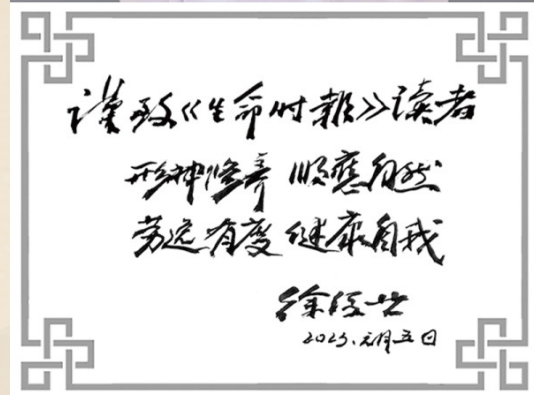 谨致《生命时报》读者
形神修养 顺应自然
劳逸有度 健康自我
徐经世
2025.元月五日